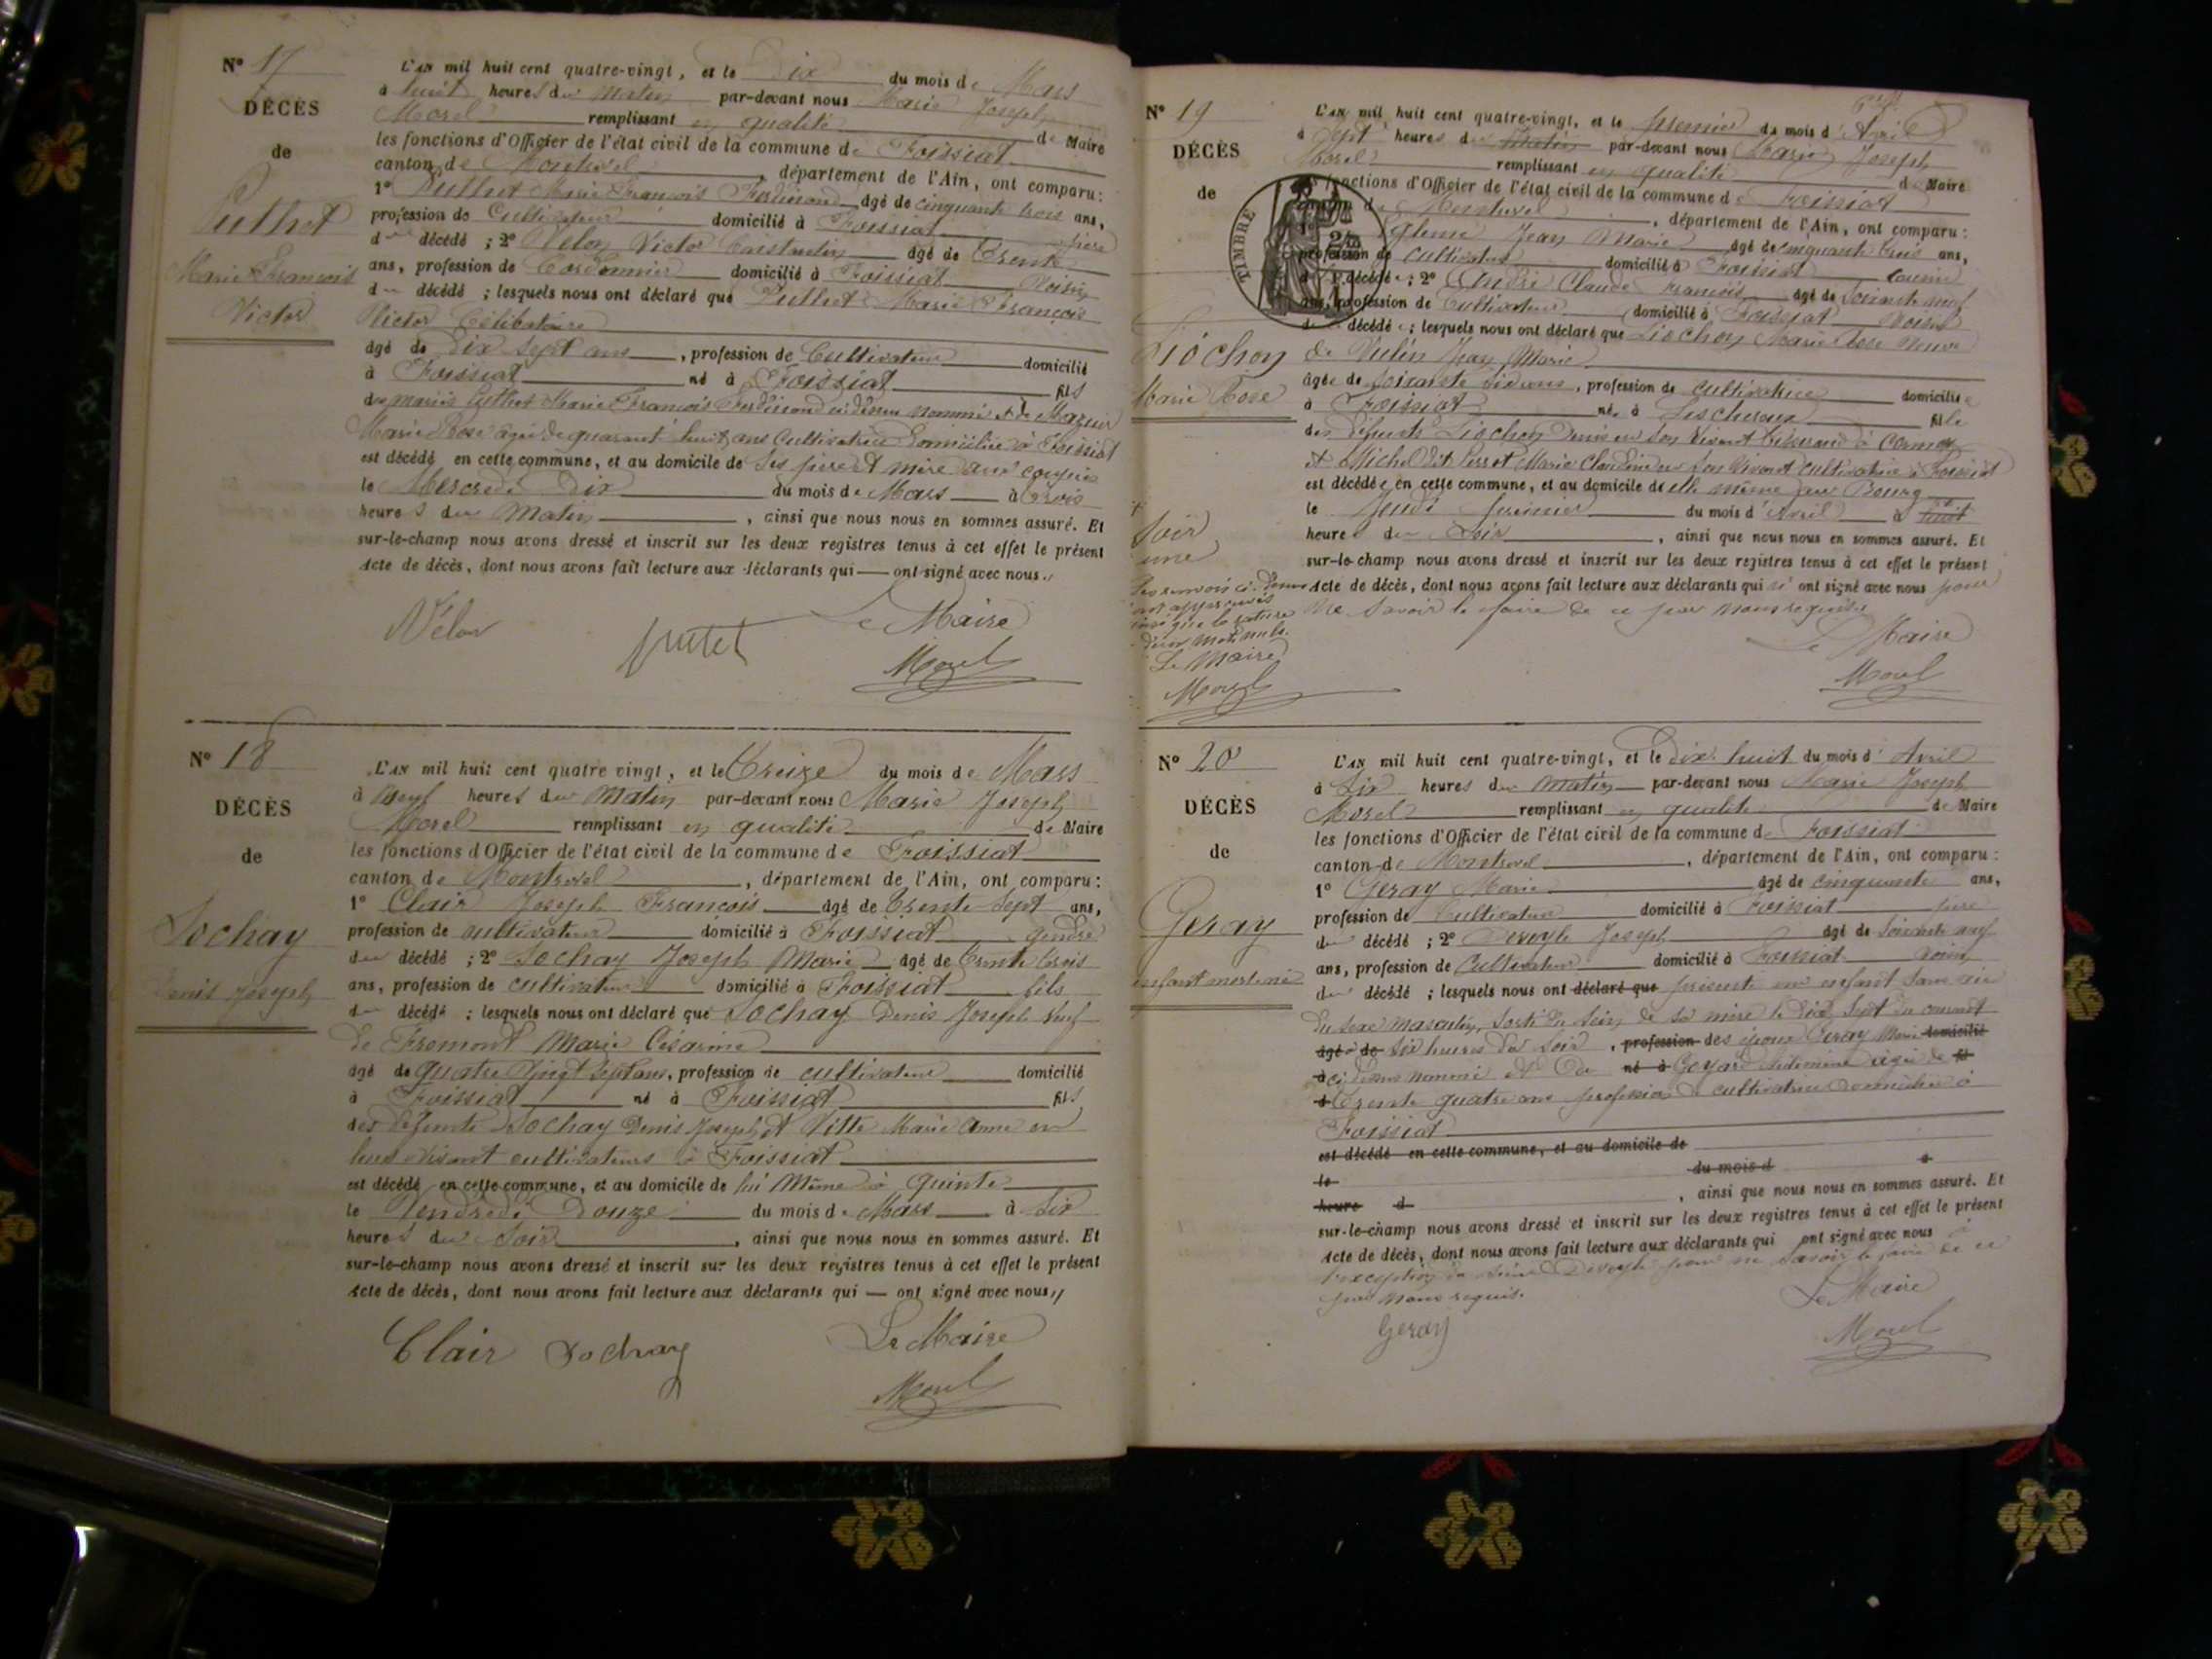 N° 17
DÉCÈS
de
Puthet
Marie François
Victor
L'AN mil huit cent quatre-vingt, et le Dix du mois de Mars
à huit heures du matin par-devant nous Marie Joseph
Morel remplissant en qualité de Maire
les fonctions d'Officier de l'état civil de la commune de Foissiat
canton de Montrevel, département de l'Ain, ont comparu:
1° Puthet Marie François Ferdinand âgé de cinquante trois ans,
profession de Cultivateur domicilié à Foissiat père
du décédé ; 2° Velon Victor Constantin âgé de Trente
ans, profession de Cordonnier domicilié à Foissiat Voisin
du décédé ; lesquels nous ont déclaré que Puthet Marie François
Victor Célibataire
âgé de Dix sept ans, profession de Cultivateur domicilié
à Foissiat né à Foissiat fils
des mariés Puthet Marie François Ferdinand ci dessus nommé et de
Marie Rose âgée de quarante huit ans Cultivatrice Domiciliée à Foissiat
est décédé en cette commune, et au domicile de Ses père et mère aux
le Mercredi Dix du mois de Mars à trois
heures du Matin, ainsi que nous nous en sommes assuré. Et
sur-le-champ nous avons dressé et inscrit sur les deux registres tenus à cet effet le présent
acte de décès, dont nous avons fait lecture aux déclarants qui — ont signé avec nous.,
Vélon putet Le Maire
Morel
N° 18
DÉCÈS
de
Sochay
Denis Joseph
L'AN mil huit cent quatre vingt, et le Treize du mois de Mars
à neuf heures du matin par-devant nous Marie Joseph
Morel remplissant en qualité de Maire
les fonctions d'Officier de l'état civil de la commune de Foissiat
canton de Montrevel, département de l'Ain, ont comparu:
1° Clair Joseph François âgé de Trente Sept ans,
profession de cultivateur domicilié à Foissiat gendre
du décédé ; 2° Sochay Joseph Marie âgé de Trente trois
ans, profession de cultivateur domicilié à Foissiat fils
du décédé ; lesquels nous ont déclaré que Sochay Denis Joseph Veuf
de Fremont Marie Césarine
âgé de quatre Vingt Sept ans, profession de cultivateur domicilié
à Foissiat né à Foissiat fils
des défunts Sochay Denis Joseph et Vitte Marie Anne en
leur vivant cultivateurs à Foissiat
est décédé en cette commune, et au domicile de lui Même à Quinte
le Vendredi Douze du mois de Mars à Six
heures du Soir, ainsi que nous nous en sommes assuré. Et
sur-le-champ nous avons dressé et inscrit sur les deux registres tenus à cet effet le présent
acte de décès, dont nous avons fait lecture aux déclarants qui — ont signé avec nous,,
Clair Sochay Le Maire
Morel
N° 19
DÉCÈS
de
Liochon
Marie Rose
TIMBRE
L'AN mil huit cent quatre-vingt, et le premier du mois d'Avril
à Sept heures du matin par-devant nous Marie Joseph
Morel remplissant en qualité de Maire
les fonctions d'Officier de l'état civil de la commune de Foissiat
canton de Montrevel, département de l'Ain, ont comparu:
Jean Marie âgé de cinquante trois ans,
profession de cultivateur domicilié à Foissiat cousin
de la décédée ; 2° André Claude François âgé de Soixante neuf
ans, profession de Cultivateur domicilié à Foissiat Voisin
de la décédée ; lesquels nous ont déclaré que Liochon Marie Rose Veuve
de Vulin Jean Marie
âgée de Soixante dix ans, profession de cultivatrice domiciliée
à Foissiat née à Lescheroux fille
des défunts Liochon Denis en Son Vivant à
et Michel dit Perret Marie Claudine en Son Vivant Cultivatrice à Foissiat
est décédée en cette commune, et au domicile de elle même au Bourg
le Jeudi premier du mois d'Avril à huit
heures du Soir, ainsi que nous nous en sommes assuré. Et
sur-le-champ nous avons dressé et inscrit sur les deux registres tenus à cet effet le présent
acte de décès, dont nous avons fait lecture aux déclarants qui n'ont signé avec nous pour
ne Savoir le faire de ce par nous requis.
Le Maire
Morel
Soir
une
Les renvois ci-dessus
sont approuvés
ainsi que la rature
deux mots nuls.
Le Maire
Morel
N° 20
DÉCÈS
de
Geray
enfant mort-né
L'AN mil huit cent quatre-vingt, et le Dix huit du mois d'Avril
à Six heures du matin par-devant nous Marie Joseph
Morel remplissant en qualité de Maire
les fonctions d'Officier de l'état civil de la commune de Foissiat
canton de Montrevel, département de l'Ain, ont comparu:
1° Geray Marie âgé de cinquante ans,
profession de Cultivateur domicilié à Foissiat père
du décédé ; 2° Deroyle Joseph âgé de Soixante neuf
ans, profession de Cultivateur domicilié à Foissiat voisin
du décédé ; lesquels nous ont déclaré que présenté un enfant Sans vie
du Sexe Masculin, Sorti du Sein de Sa mère le Dix Sept du courant
âgé de Six heures du Soir, profession des époux Geray Marie domicilié
à ci dessus nommé et De né à Goyard âgée de fil
d Trente quatre ans profession de cultivatrice domiciliée à
Foissiat
est décédé en cette commune, et au domicile de
le du mois d à
heure d, ainsi que nous nous en sommes assuré. Et
sur-le-champ nous avons dressé et inscrit sur les deux registres tenus à cet effet le présent
acte de décès, dont nous avons fait lecture aux déclarants qui ont signé avec nous à
l'exception du Sieur Deroyle pour ne Savoir le faire de ce
par nous requis.
Geray Le Maire
Morel